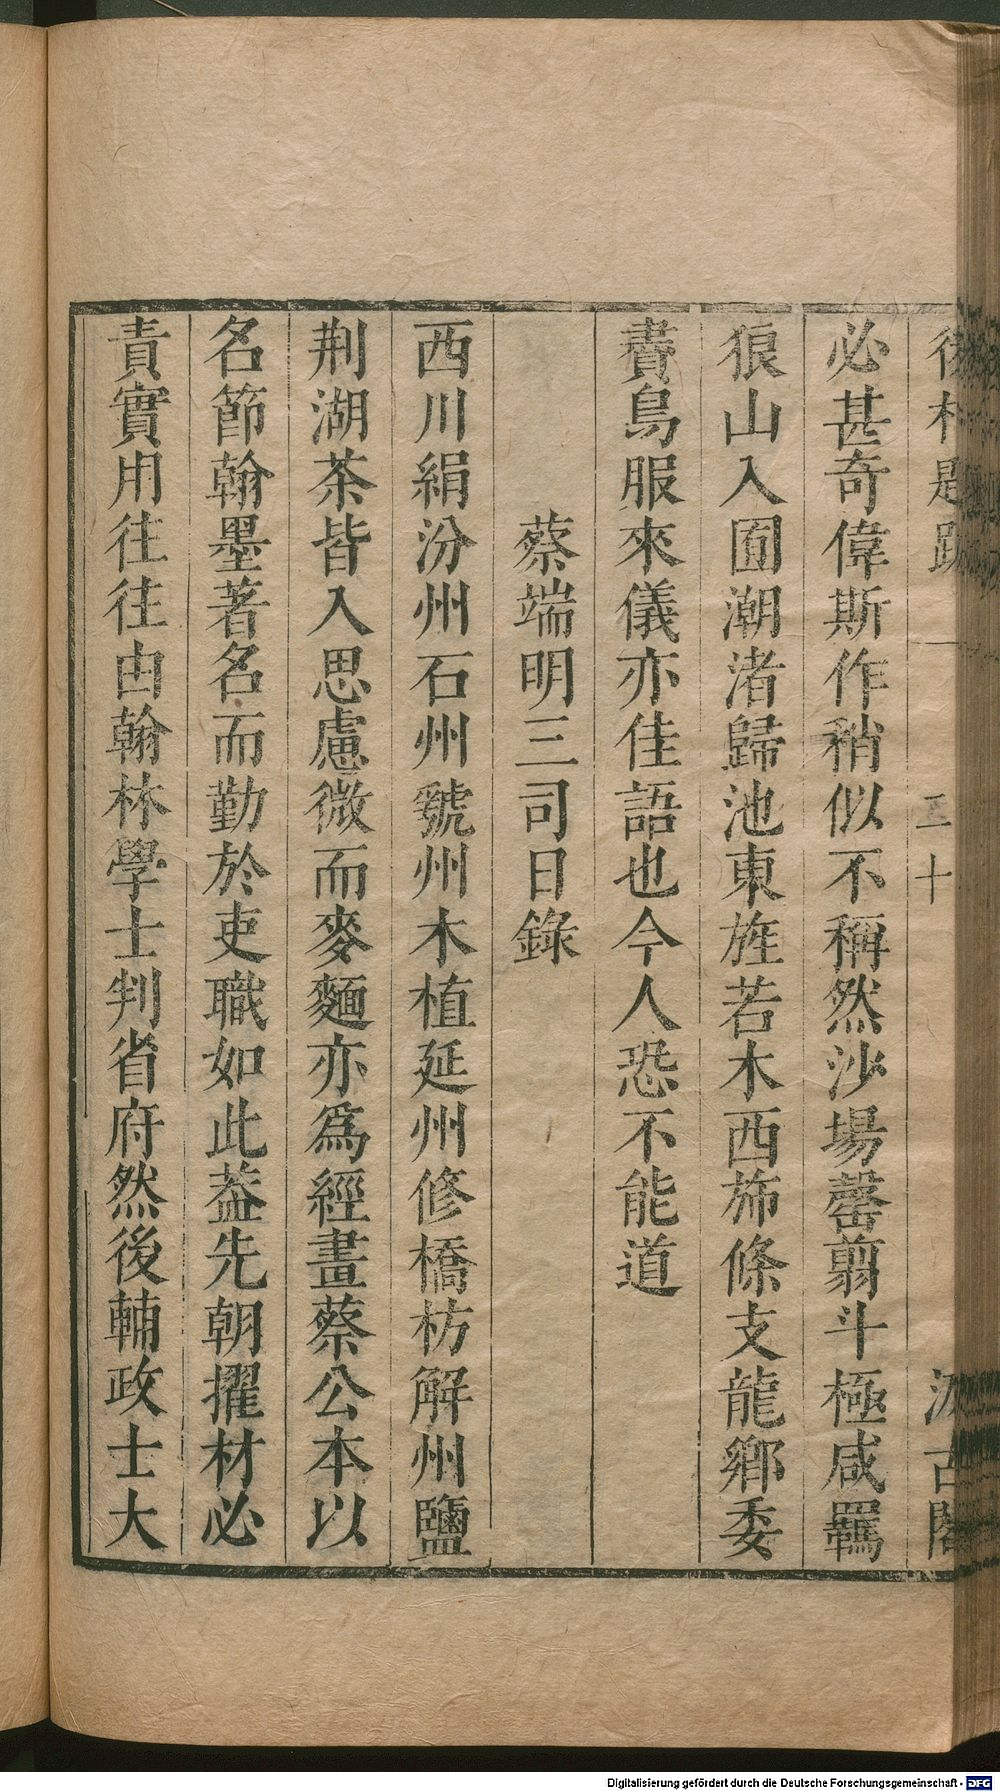 後村題跋 一 二十 汲古閣
必甚奇偉斯作稍似不稱然沙場罄翦斗極咸羈
狼山入囿潮渚歸池東旌若木西斾條支龍鄉委
賮鳥服來儀亦佳語也今人恐不能道
蔡端明三司日錄
西川絹汾州石州虢州木植延州修橋枋解州鹽
荆湖茶皆入思慮微而麥麵亦爲經畫蔡公本以
名節翰墨著名而勤於吏職如此葢先朝擢材必
責實用往往由翰林學士判省府然後輔政士大
Digitalisierung gefördert durch die Deutsche Forschungsgemeinschaft - DFG